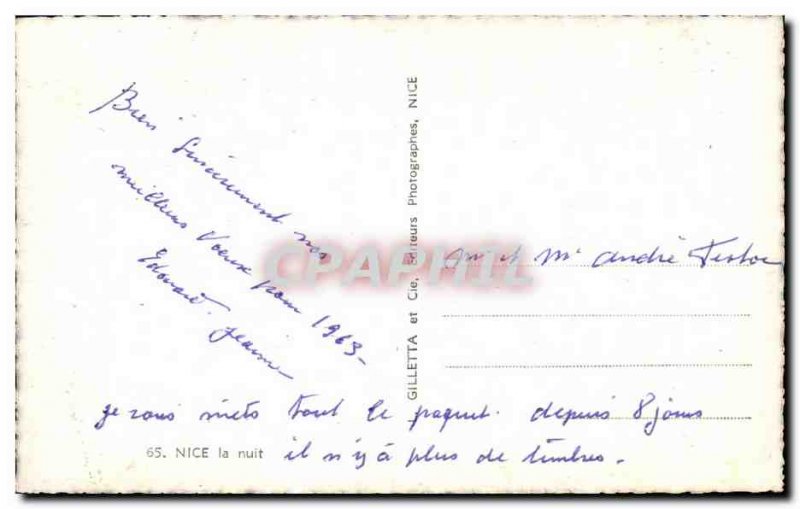 Bien Sincèrement nos
meilleurs Voeux pour 1963-
Edouard. Jeanne
GILLETTA et Cie, Editeurs Photographes, NICE
CPAPHIL
et Mr andré
je vous mets tout le paquet. depuis 8 jours
65. NICE la nuit
il n'y à plus de timbres.